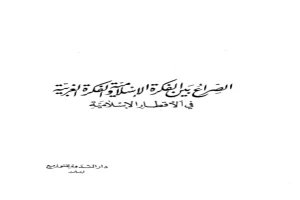 الصراع بين الفكرة الإسلامية والفكرة الغربية
في الأقطار الإسلامية
دار الندوة للتوزيع
لبنان